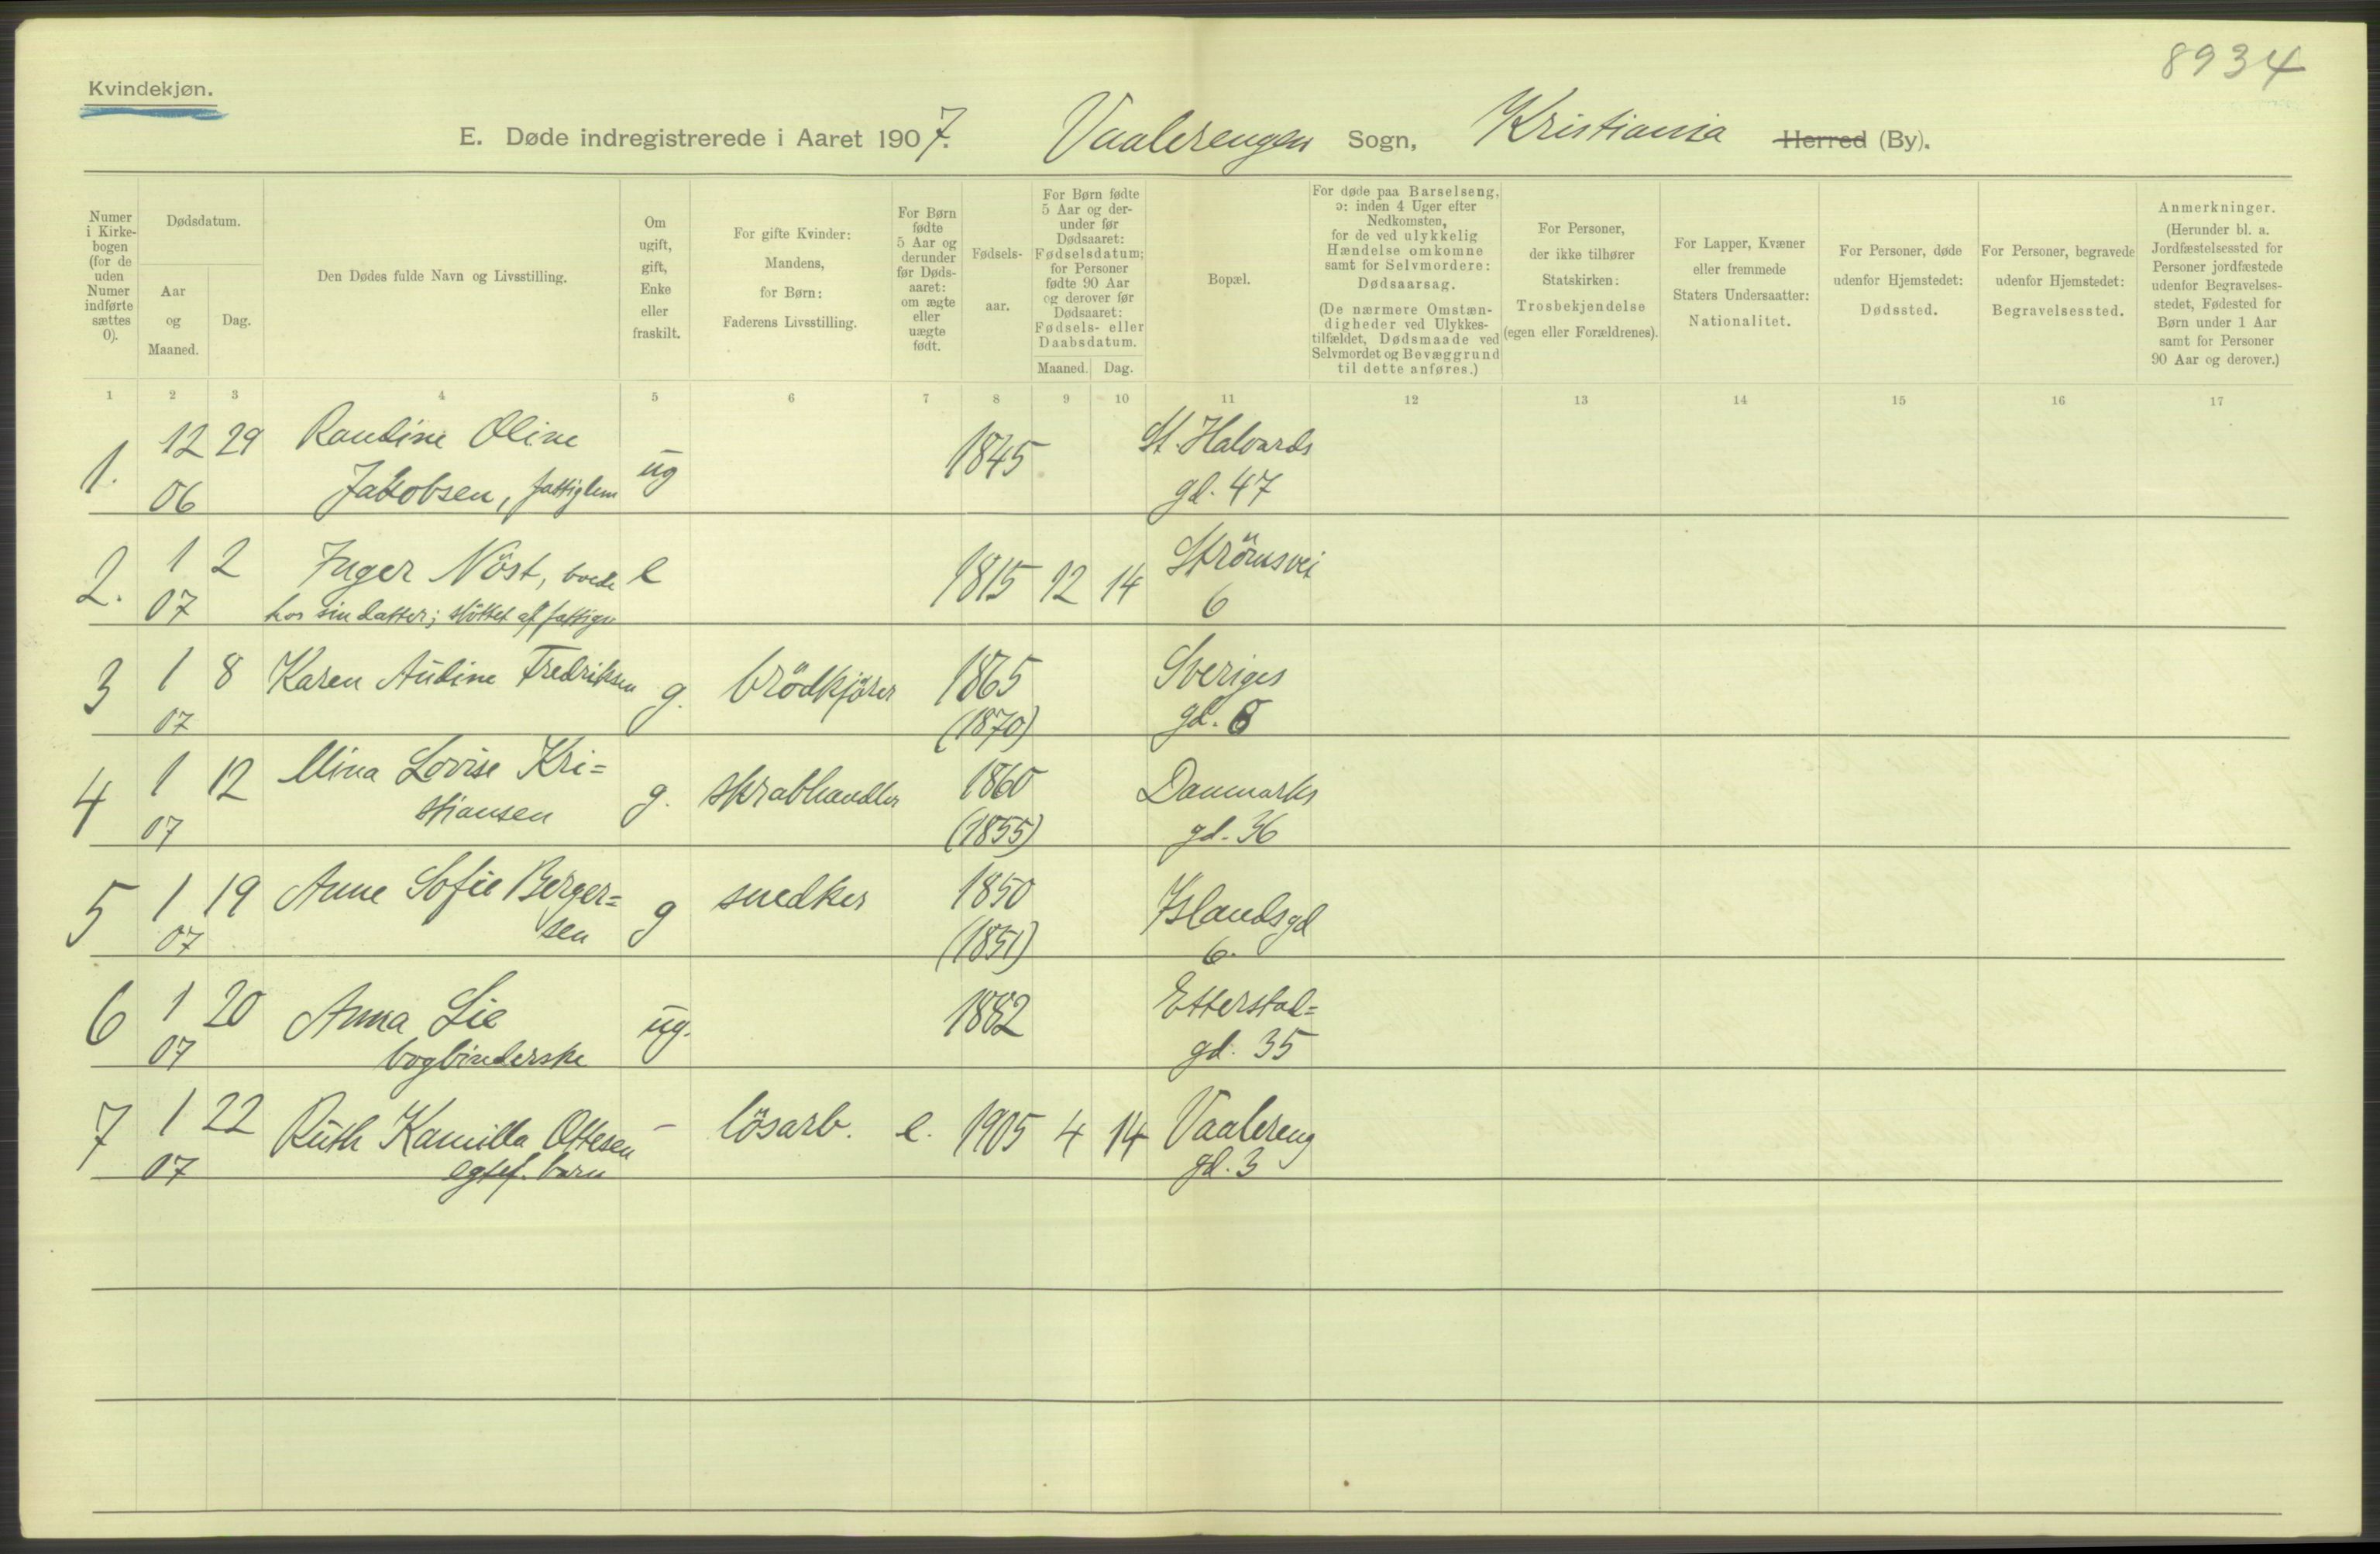 8934
Kvindekjøn.
E. Døde indregistrerede i Aaret 1907. Vaalerengen Sogn, Kristiania Herred (By).
Numer
i Kirke-
bogen
(for de
uden
Numer
indførte
sættes
0).
Dødsdatum.
Aar
og
Maaned.
Dag.
Den Dødes fulde Navn og Livsstilling.
Om
ugift,
gift,
Enke
eller
fraskilt.
For gifte Kvinder:
Mandens,
for Børn:
Faderens Livsstilling.
For Børn
fødte
5 Aar og
derunder
før Døds-
aaret:
om ægte
eller
uægte
født.
Fødsels-
aar.
For Børn fødte
5 Aar og der-
under før
Dødsaaret:
Fødselsdatum;
for Personer
fødte 90 Aar
og derover før
Dødsaaret:
Fødsels- eller
Daabsdatum.
Maaned. Dag.
Bopæl.
For døde paa Barselseng,
ɔ: inden 4 Uger efter
Nedkomsten,
for de ved ulykkelig
Hændelse omkomne
samt for Selvmordere:
Dødsaarsag.
(De nærmere Omstæn-
digheder ved Ulykkes-
tilfældet, Dødsmaade ved
Selvmordet og Bevæggrund
til dette anføres.)
For Personer,
der ikke tilhører
Statskirken:
Trosbekjendelse
(egen eller Forældrenes).
For Lapper, Kvæner
eller fremmede
Staters Undersaatter:
Nationalitet.
For Personer, døde
udenfor Hjemstedet:
Dødssted.
For Personer, begravede
udenfor Hjemstedet:
Begravelsessted.
Anmerkninger.
(Herunder bl. a.
Jordfæstelsessted for
Personer jordfæstede
udenfor Begravelses-
stedet, Fødested for
Børn under 1 Aar
samt for Personer
90 Aar og derover.)
1 2 3 4 5 6 7 8 9 10 11 12 13 14 15 16 17
1. 12 29 Randine Oline ug 1845 St. Halvards
06 Jakobsen, fattiglem gd. 47
2. 1 2 Inger Nöst, boede e 1815 12 14 Strömsvei
07 hos sin datter; støttet af fattigv 6
3 1 8 Karen Audine Fredriksen g. brödkjörer 1865 Sveriges
07 (1870) gd. 6
4 1 12 Mina Lovise Kri= g. skrabhandler 1860 Danmarks
07 stiansen (1855) gd. 36
5 1 19 Anne Sofie Berger= g snedker 1850 Islandsgd
07 sen (1851) 6.
6 1 20 Anna Lie ug. 1882 Etterstad=
07 bogbinderske gd. 35
7 1 22 Ruth Kamilla Ottesen – lösarb. e. 1905 4 14 Vaalereng
07 egtef. barn gd. 3